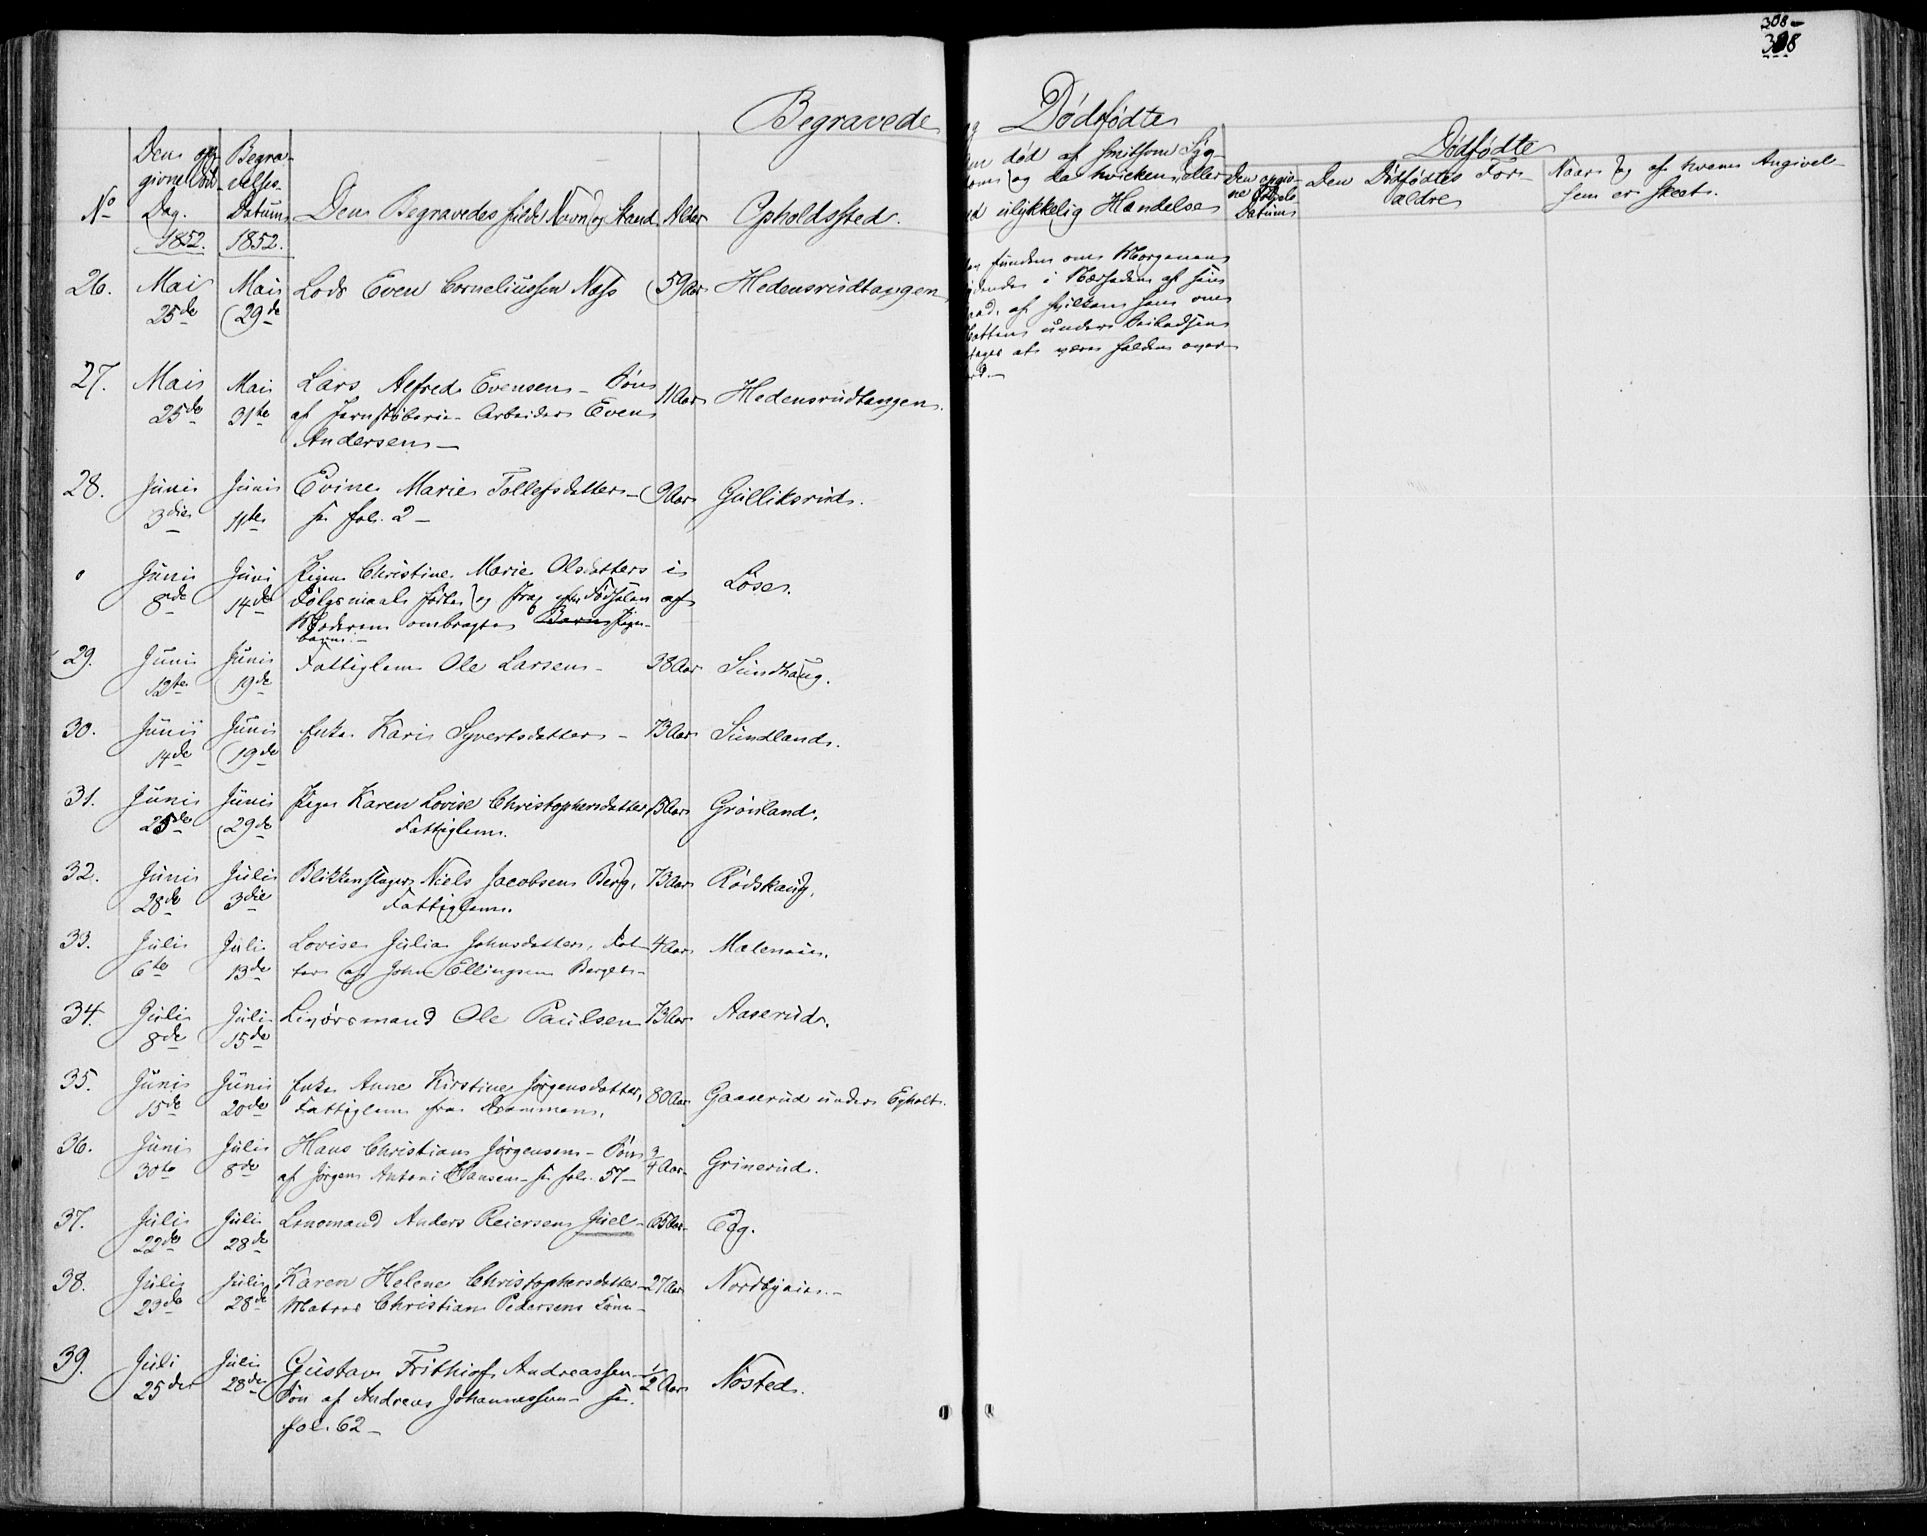 308-
308
Begravede
No
Den opgivne Død Dag.
1852.
Begravelses Datum
1852.
Den Begravedes fulde Navn og Stand.
Alder
Opholdssted.
26.
Mai 25de
Mai 29de
Lods Even Corneliussen Næss
59 Aar
Hedensrudtangen
27.
Mai 25de
Mai 31te
Lars Alfred Evensen - Søn
af Jernstøberie-Arbeider Even
Andersen -
11 Aar
Hedensrudtangen.
28.
Juni 3die
Juni 11te
Evine Marie Tollefsdatter -
fol. 2 -
9 Aar
Gulliksrud.
Juni 8de
Juni 14de
Pigen Christine Marie Olsdatters i
Dølgsmaal fødte og strax efter Fødselen af
Moderen ombragte Barn Pige-
barn. -
Lose.
29.
Juni 12te
Juni 19de
Fattiglem Ole Larsen -
38 Aar
Sundhaug.
30.
Juni 14de
Juni 19de
Enke Kari Syvertsdatter -
73 Aar
Sundland.
31.
Juni 25de
Juni 29de
Pige Karen Lovise Christophersdatter
Fattiglem.
Grønland.
32.
Juni 28de
Juli 3die
Blikkenslager Niels Jacobsen Berg,
Fattiglem.
73 Aar
Rødskaug.
33.
Juli 6te
Juli 13de
Lovise Julia Johnsdatter, Dat-
ter af John Ellingsen Berget -
4 Aar
34.
Juli 8de
Juli 15de
Ole Paulsen
73 Aar
Aaserud.
35.
Juni 15de
Juni 20de
Enke Anne Kirstine Jørgensdatter,
Fattiglem fra Drammen.
80 Aar
Gaaserud under Egholt.
36.
Juni 30te
Juli 8de
Hans Christian Jørgensen - Søn
af Jørgen Antoni Hansen - fol. 57 -
3/4 Aar
Grinerud.
37.
Juli 22de
Juli 28de
Anders Reiersen Juel -
65 Aar
Eeg.
38.
Juli 23de
Juli 28de
Karen Helene Christophersdatter -
Matros Christian Pedersens Kone -
27 Aar
39.
Juli 25de
Juli 28de
Gustav Frithiof Andreassen -
Søn af Andreas Johannessen -
fol. 62 -
1/2 Aar
Nøsted.
og Dødfødte
død af smitsom Syg-
og da hvilken, eller
ulykkelig Hændelse
funden om Morgenen
af hvilken han om
Natten under
at være falden over-
Dødfødte
Den opgivne Fødsels Datum
Den Dødfødtes For-
ældre
Naar og af hvem Angivel-
sen er skeet.